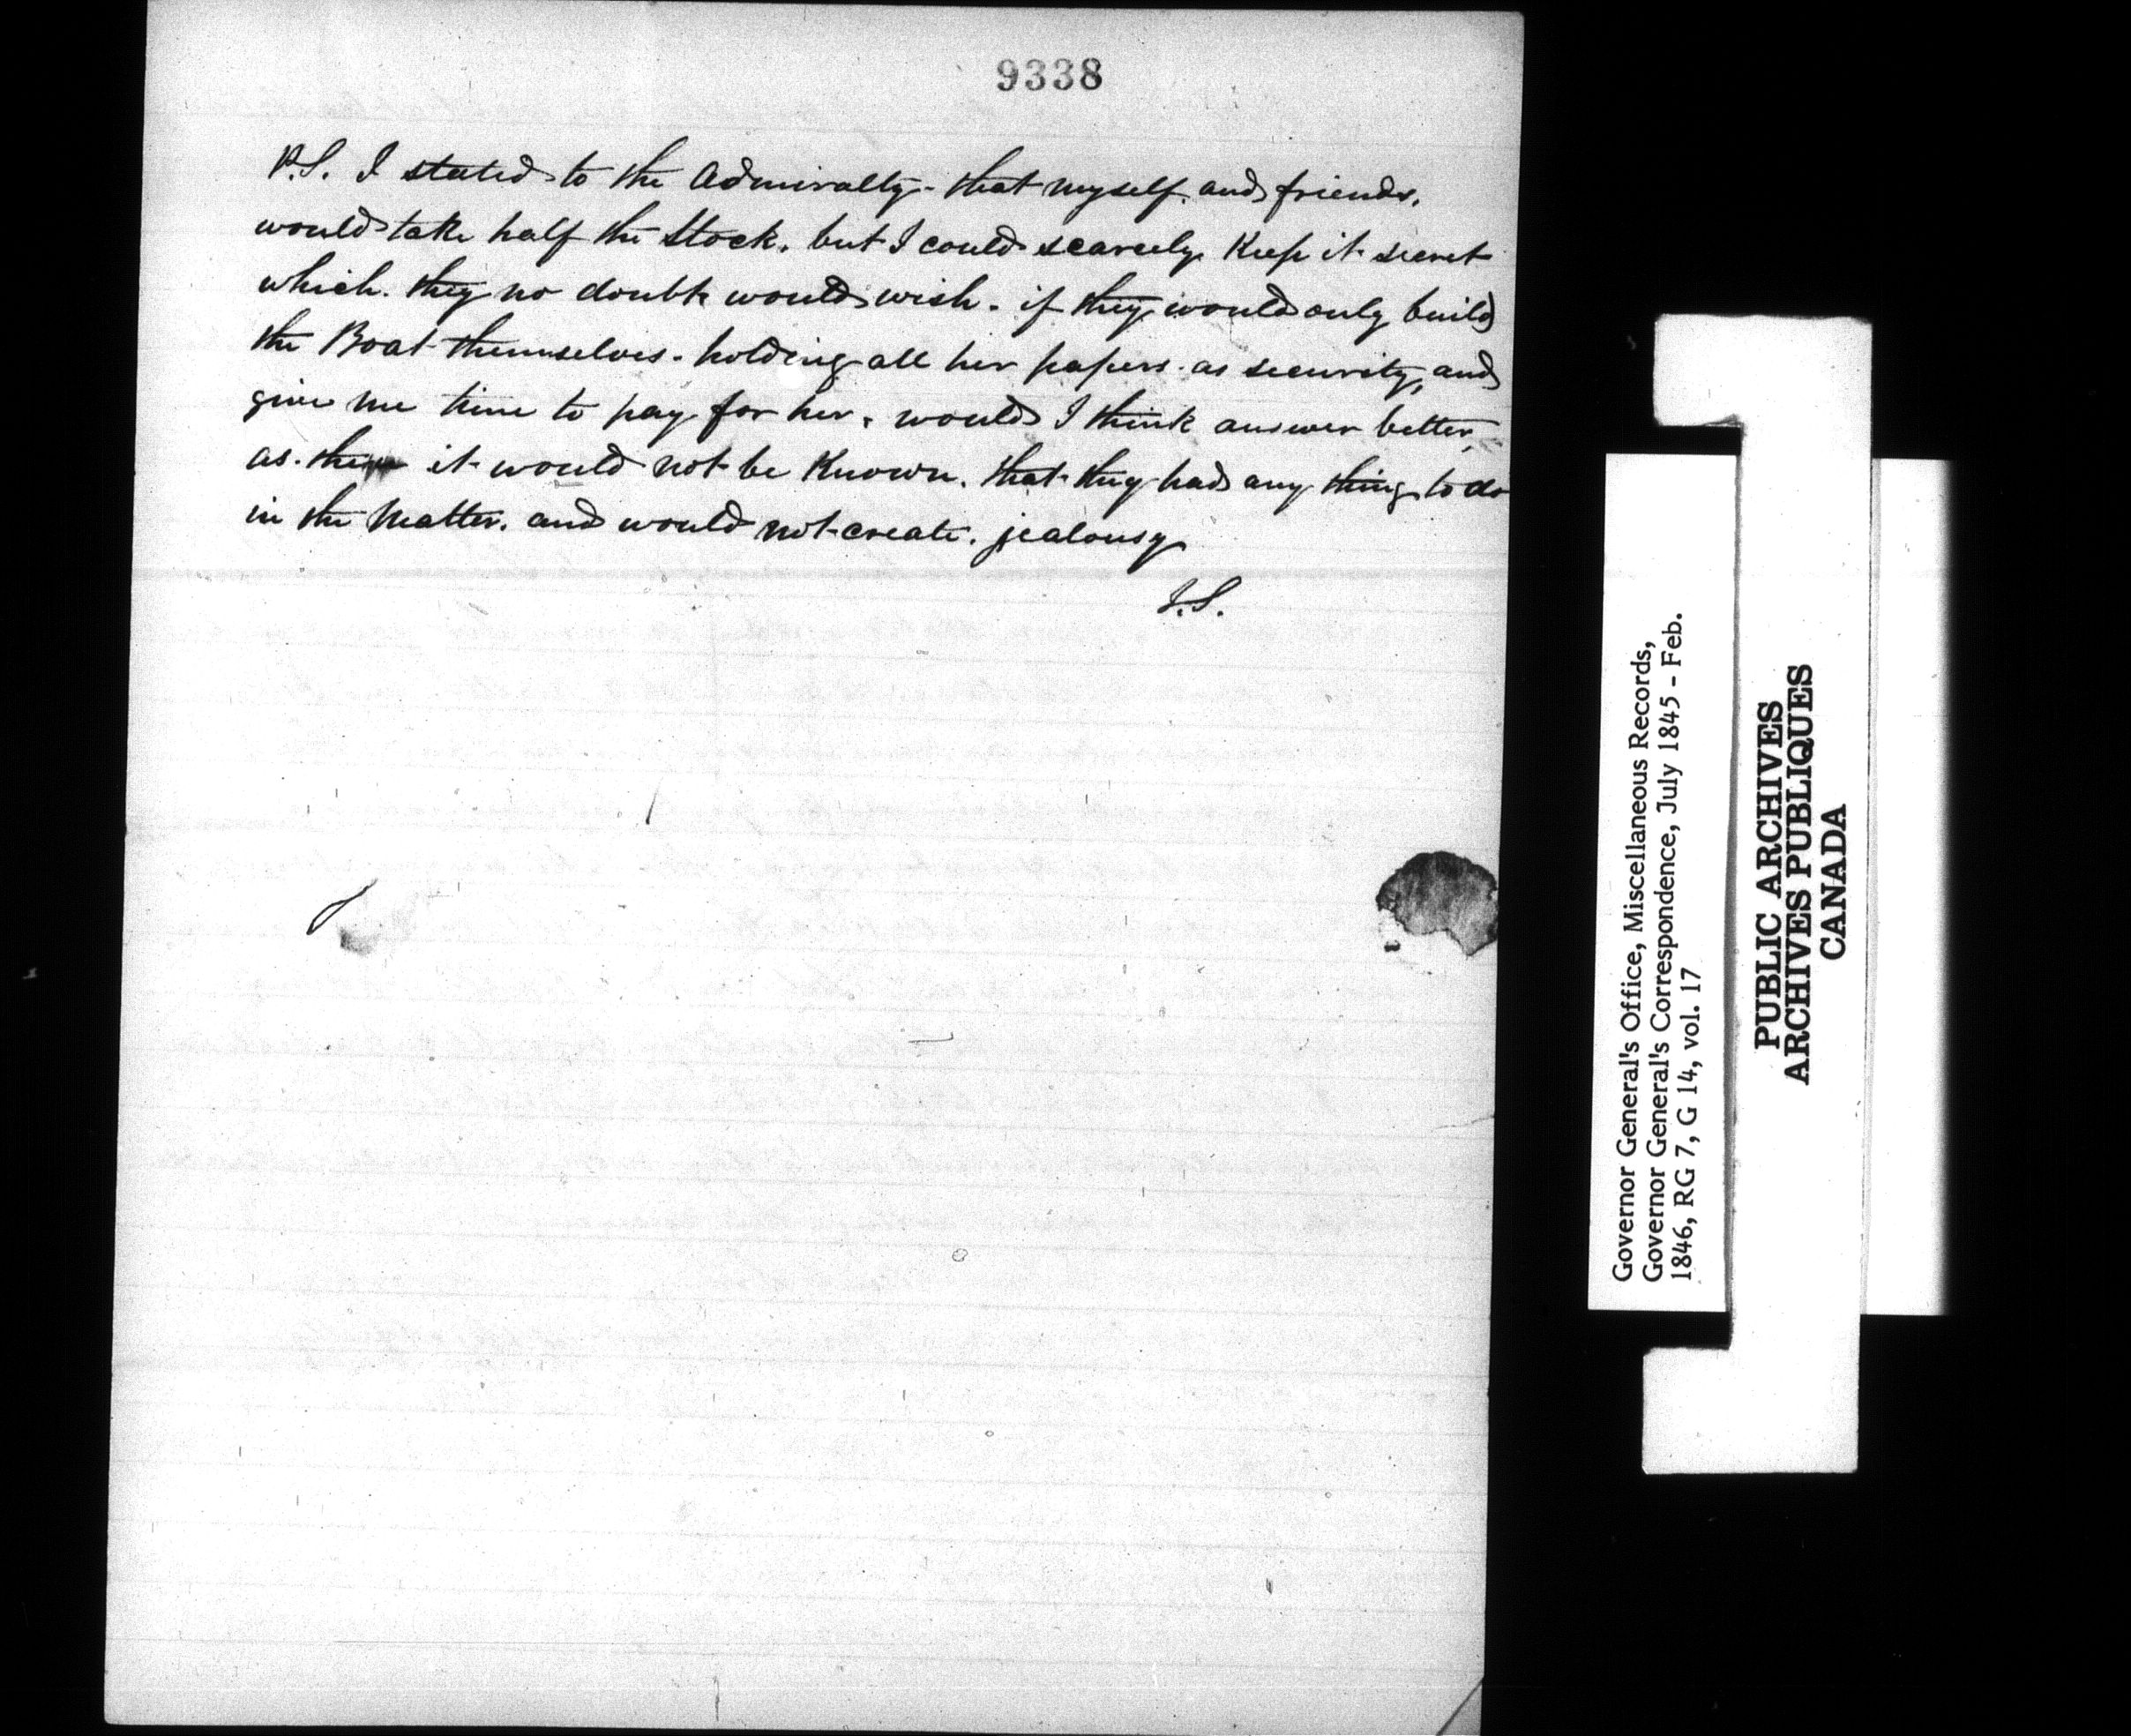 9338
P.S. I stated to the Admiralty - that myself. and friends.
would take half the Stock. but I could scarcely Keep it secret
which. they no doubt would wish. if they would only build
the Boat themselves - holding all her papers. as security, and
give me time to pay for her. would I think answer better,
as. then it would not be Known. that they had any thing to do
in the Matter. and would not create. jealousy
J.S.
Governor General's Office, Miscellaneous Records,
Governor General's Correspondence, July 1845 - Feb.
1846, RG 7, G 14, vol. 17
PUBLIC ARCHIVES
ARCHIVES PUBLIQUES
CANADA